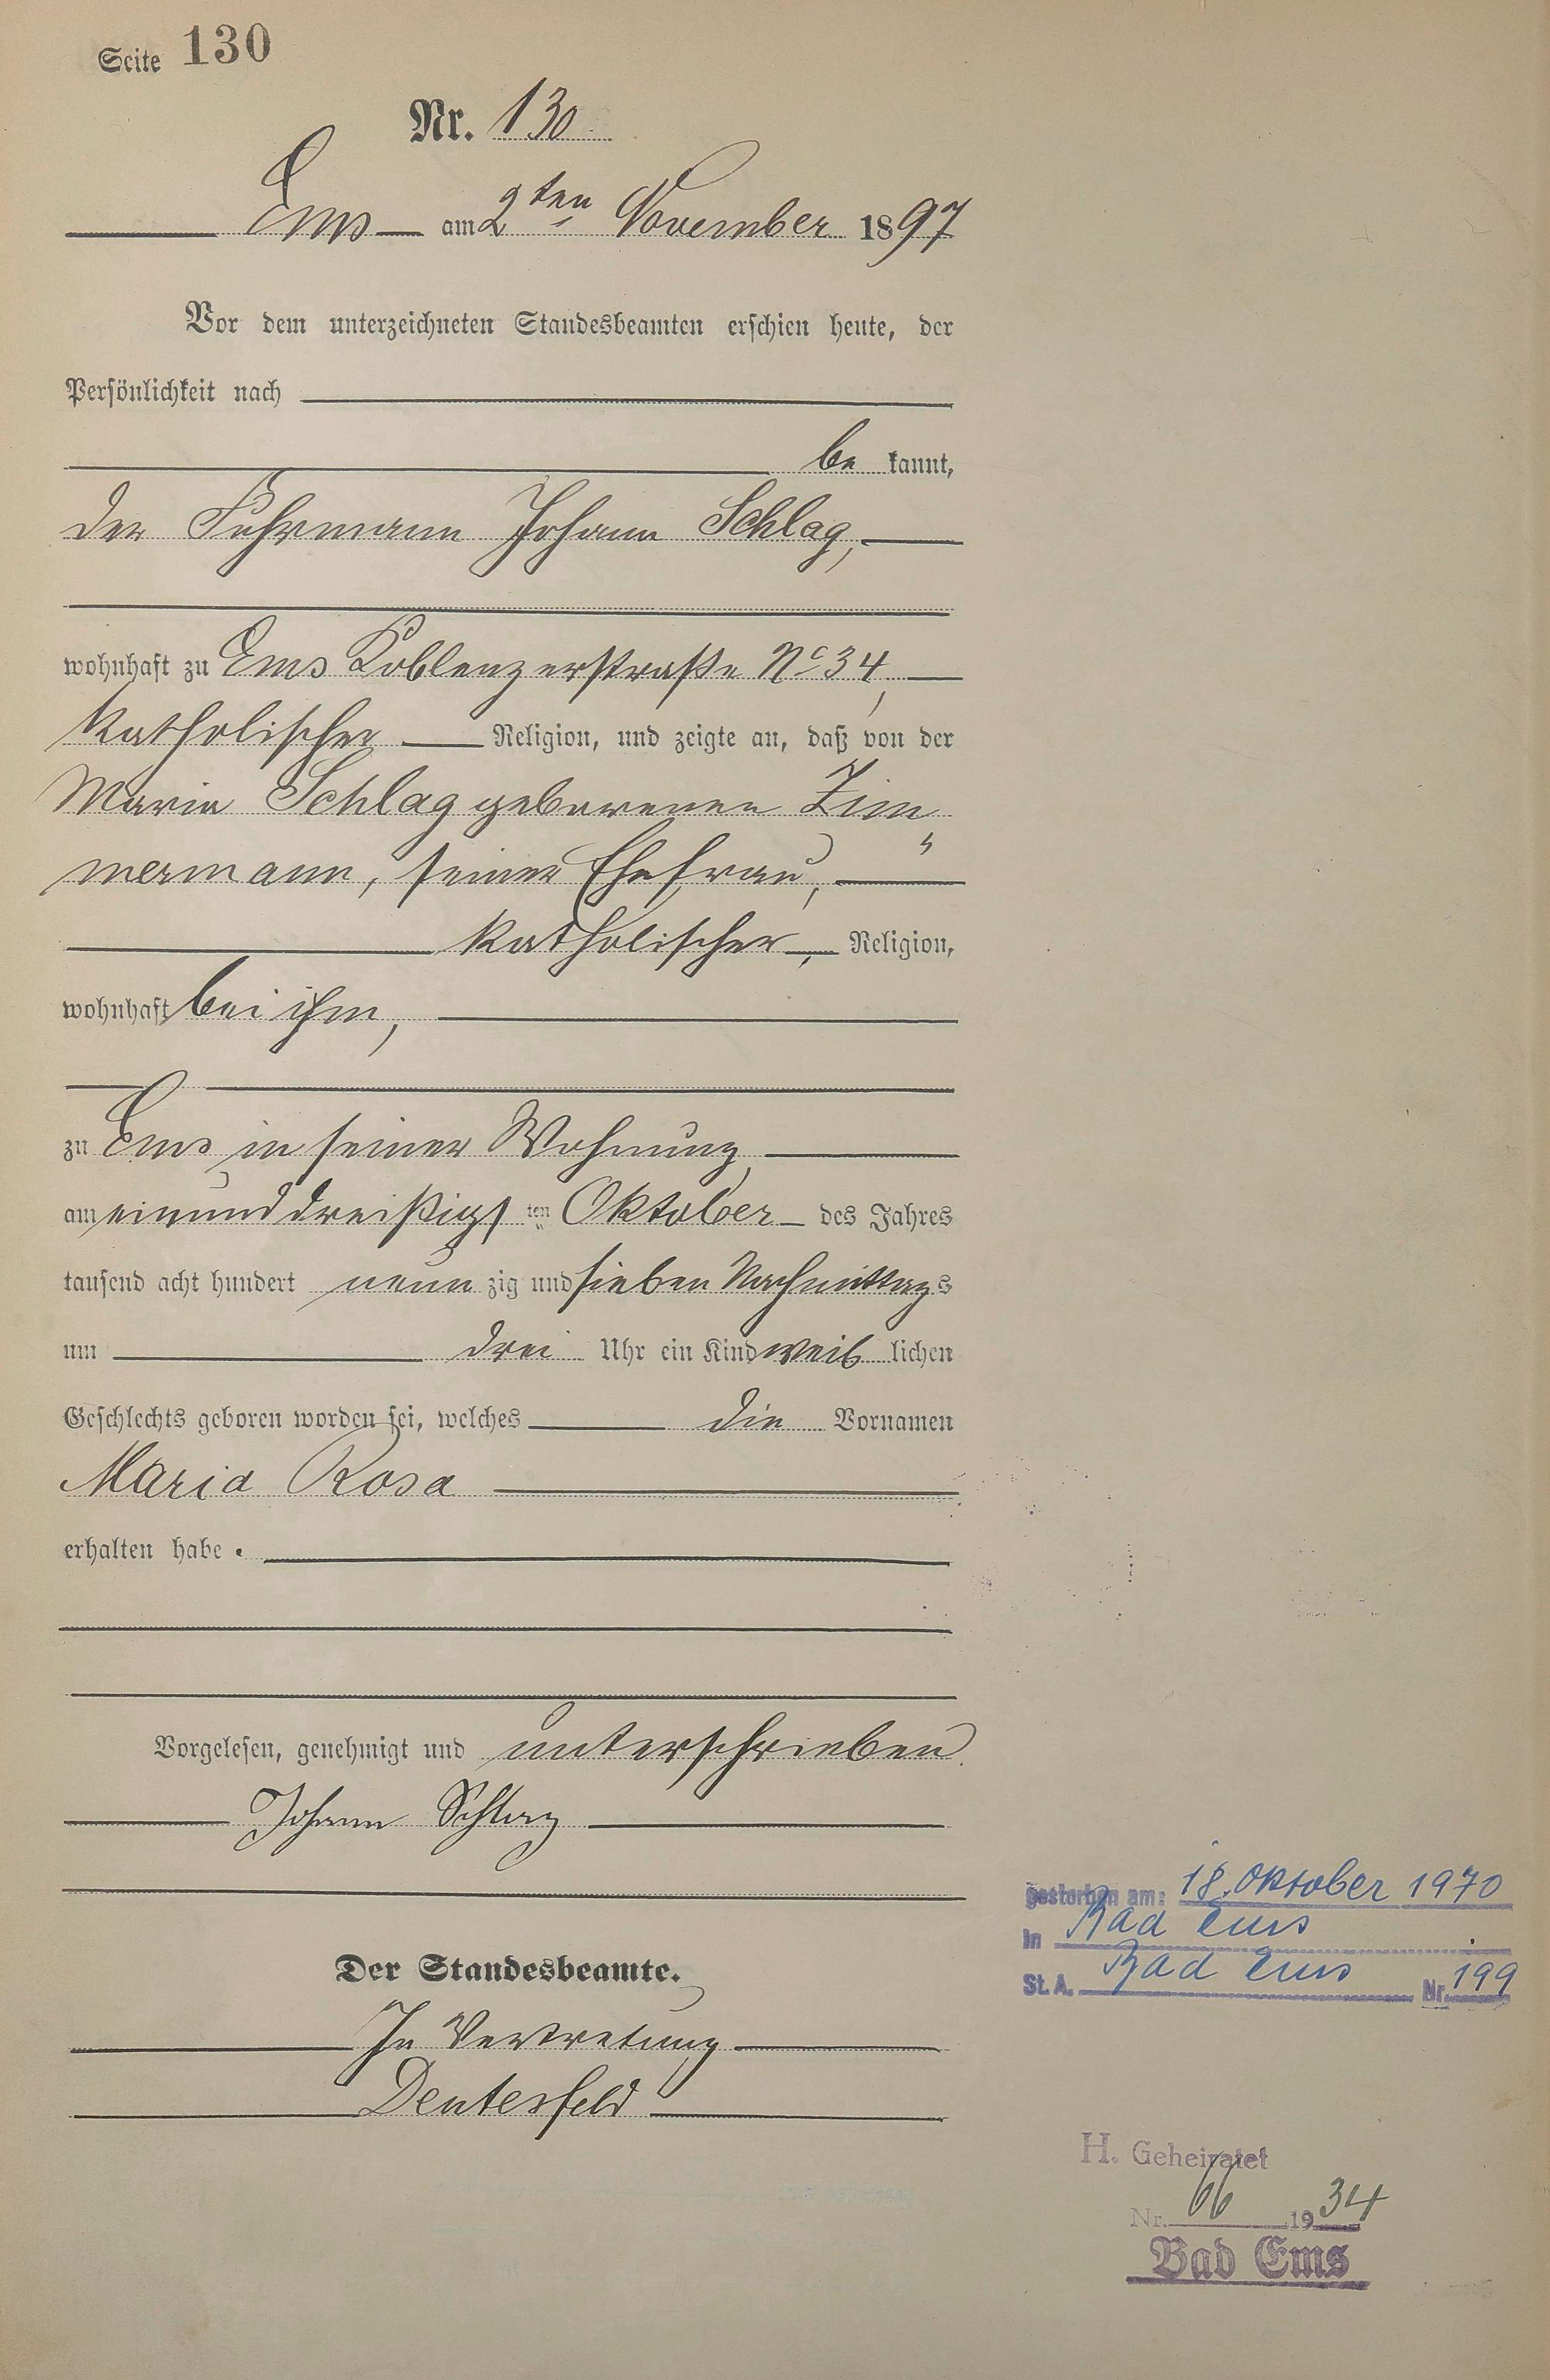 Seite 130
Nr. 130
Ems am 2ten November 1897
Vor dem unterzeichneten Standesbeamten erschien heute, der
Persönlichkeit nach
be kannt,
der Fuhrmann Johann Schlag,
wohnhaft zu Ems Koblenzerstraße No 34,
katholischer Religion, und zeigte an, daß von der
Maria Schlag geborenen Zim
mermann, seiner Ehefrau,
katholischer, Religion,
wohnhaft bei ihm,
zu Ems in seiner Wohnung,
am einunddreißigsten Oktober des Jahres
tausend acht hundert neun zig und sieben Nachmittags
um drei Uhr ein Kind weib lichen
Geschlechts geboren worden sei, welches die Vornamen
Maria Rosa
erhalten habe.
Vorgelesen, genehmigt und unterschrieben.
Johann Schlag
Der Standesbeamte.
In Vertretung
Deutesfeld
gestorben am: 18. Oktober 1970
in Bad Ems
St. A. Bad Ems Nr. 199
H. Geheiratet
Nr. 66 1934
Bad Ems